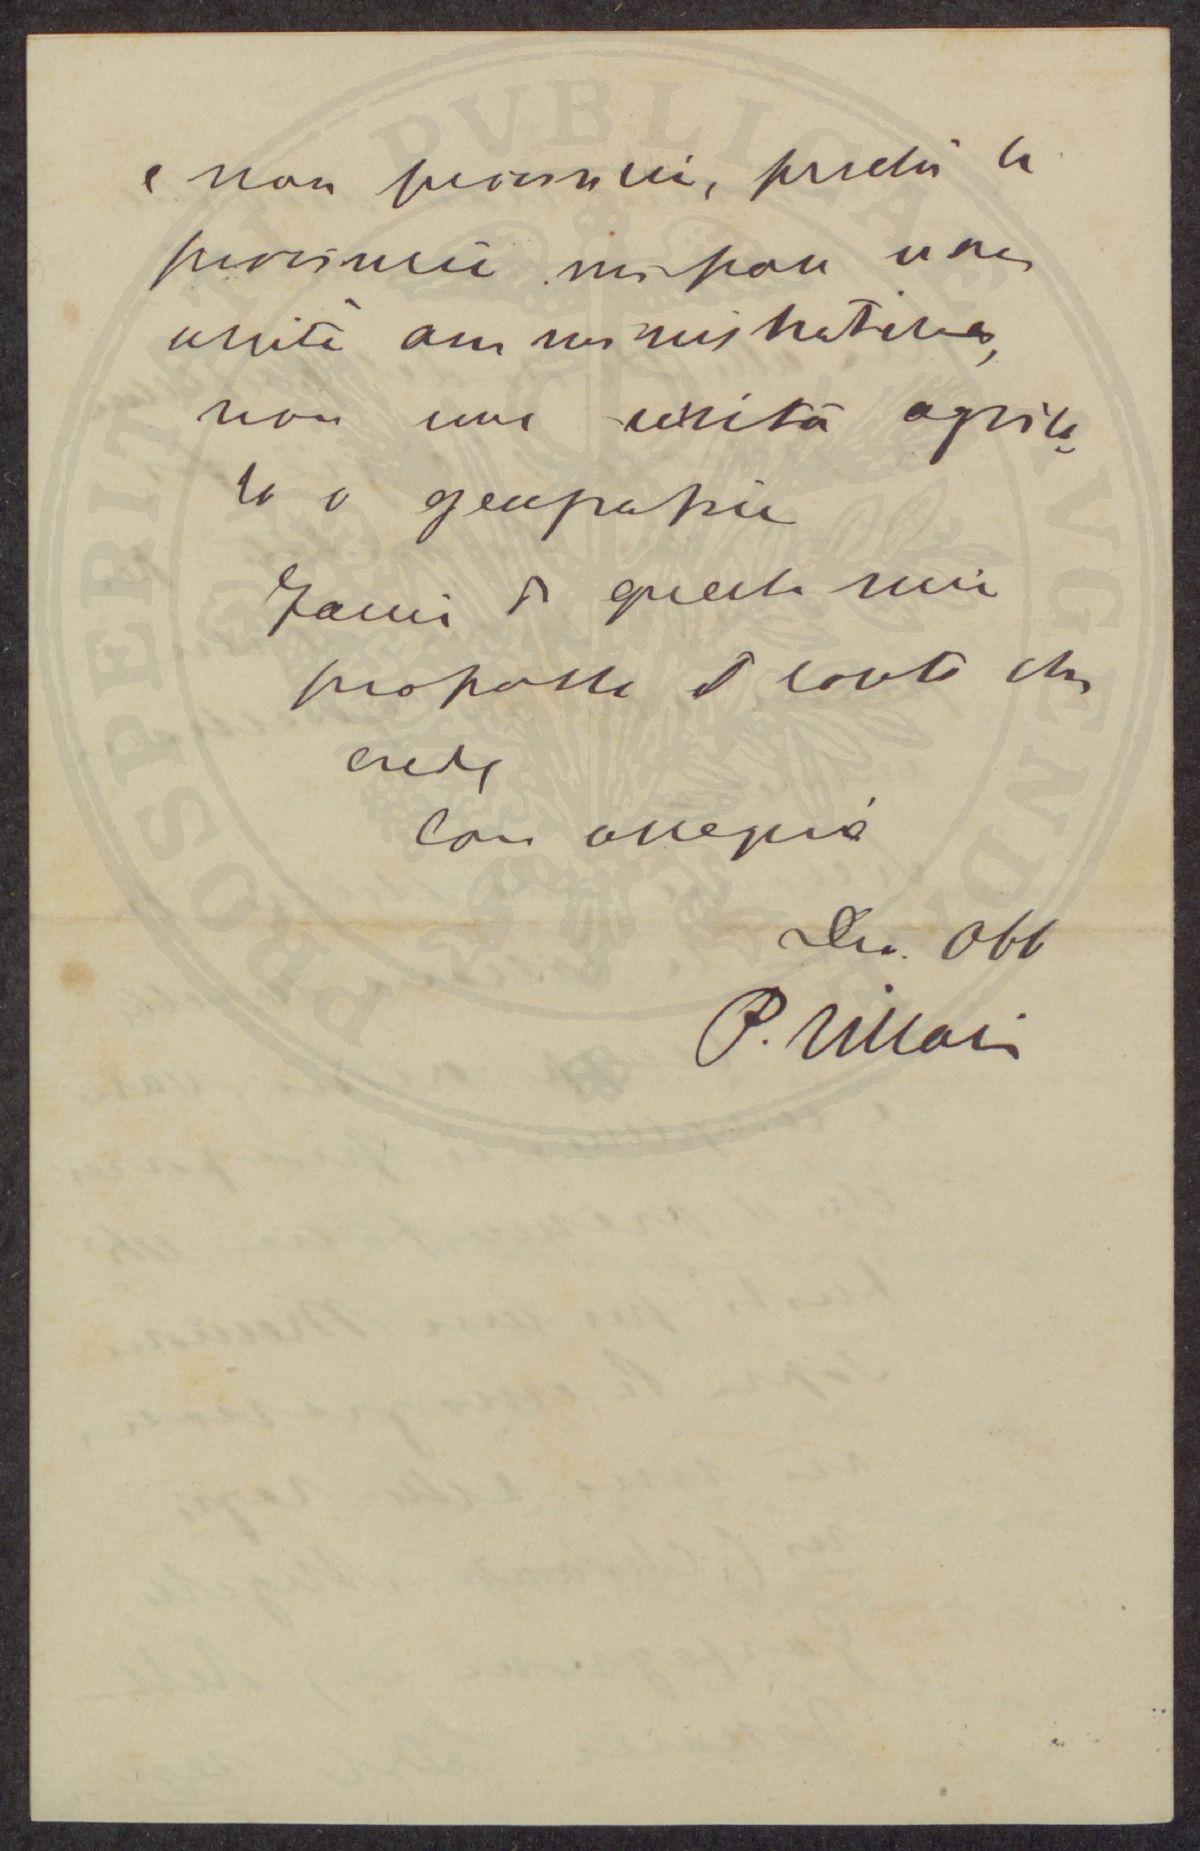 e non provincie, perchè la
provincia mi par una
unità amministrativa,
non una unità agrico-
la o geografica
Facci di questa mia
proposta il conto che
crede
Con ossequio
Dev. Obb
P. Villari
PROSPERITATI PVBLICAE AVGENDAE